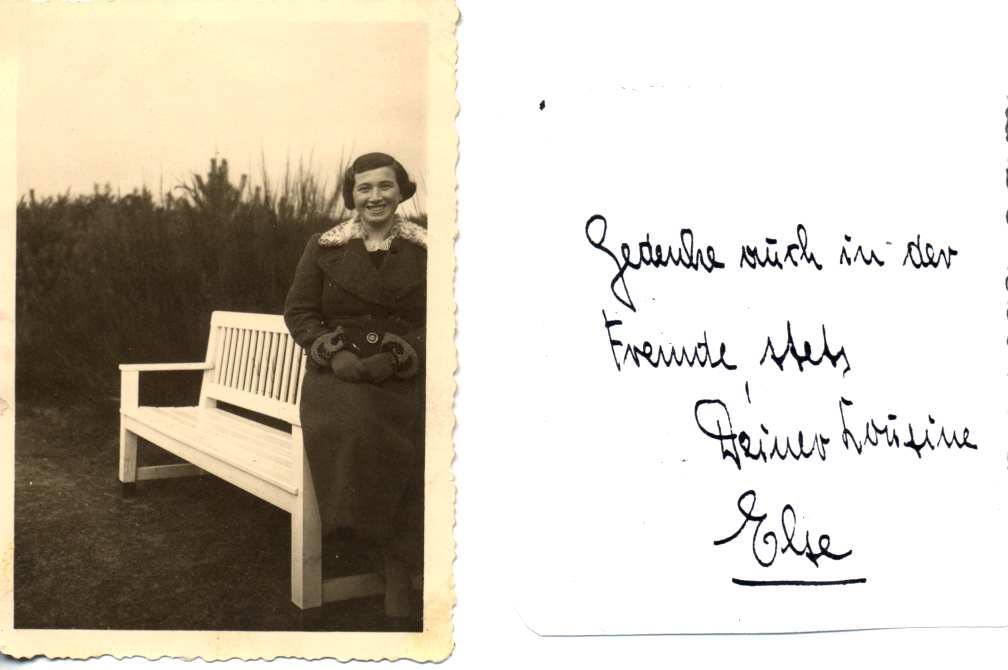 Gedenke auch in der
Fremde stets
Deiner Kousine
Else